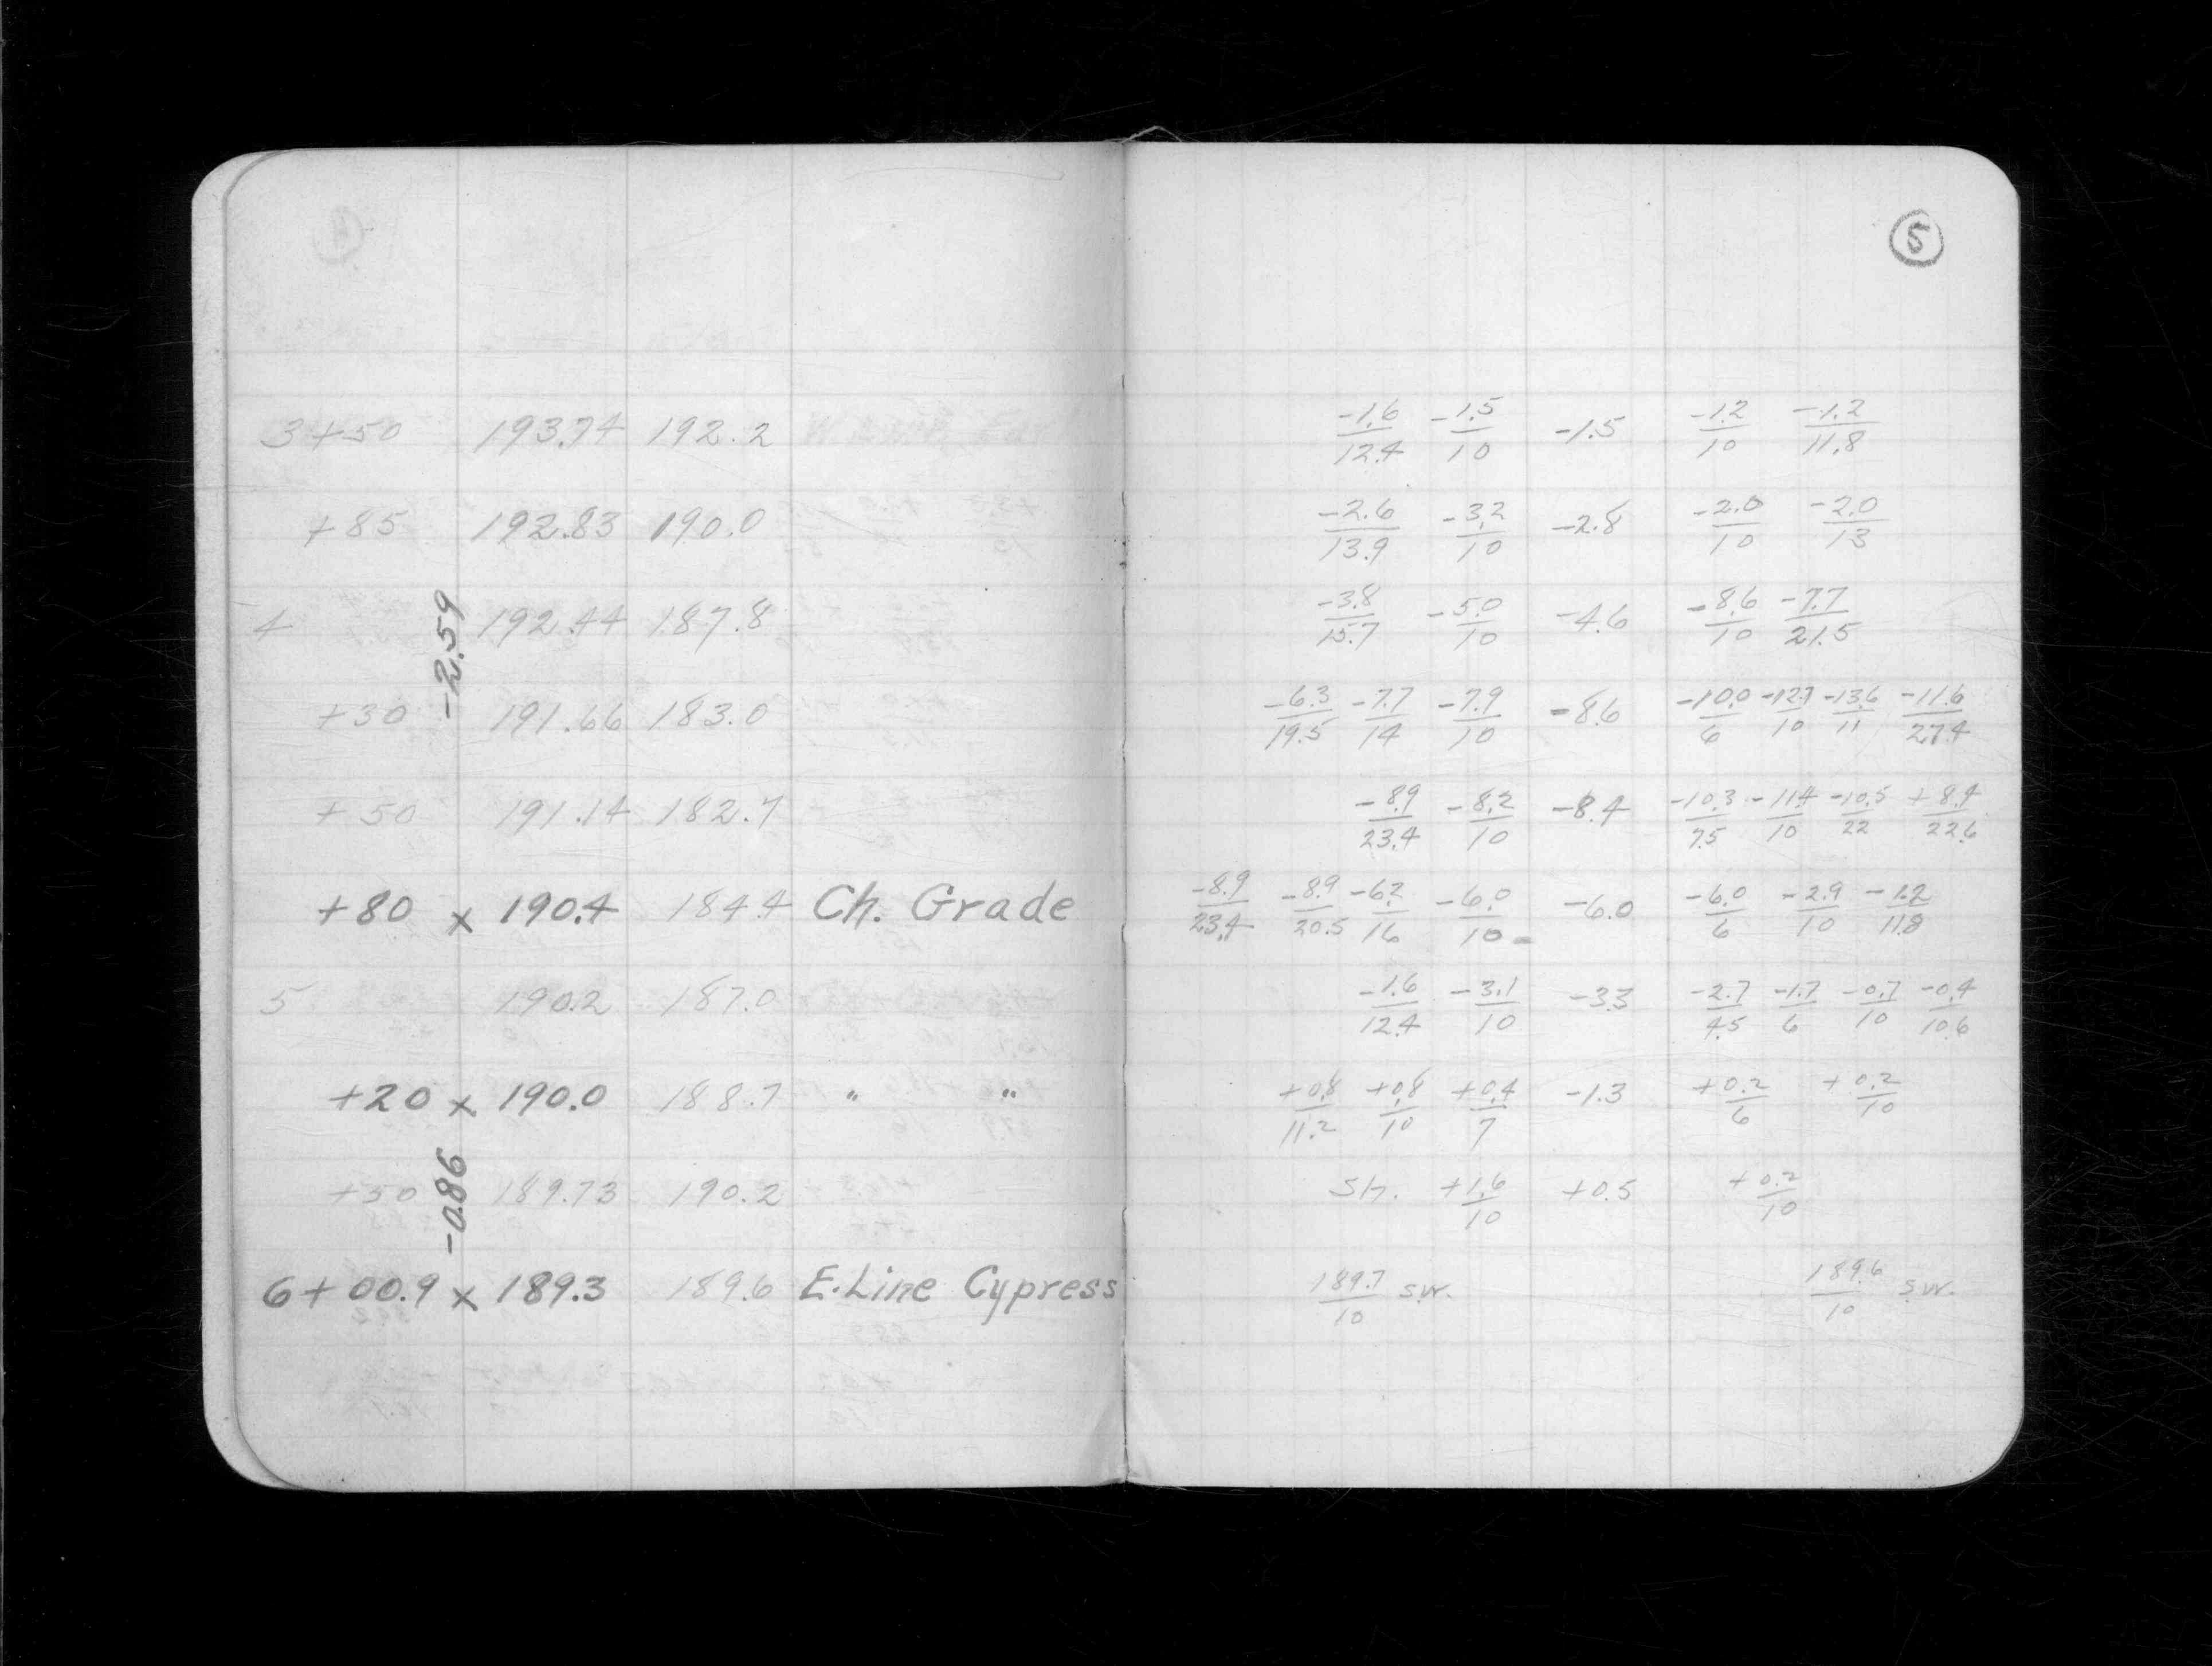 5
3+50 193.74 192.2 -1.6/12.4 -1.5/10 -1.5 -1.2/10 -1.2/11.8
+85 192.83 190.0 -2.6/13.9 -3.2/10 -2.8 -2.0/10 -2.0/13
4 192.44 187.8 -3.8/15.7 -5.0/10 -4.6 -8.6/10 -7.7/21.5
-2.59
+30 191.66 183.0 -6.3/19.5 -7.7/14 -7.9/10 -8.6 -10.0/6 -12.7/10 -13.6/11 -11.6/27.4
+50 191.14 182.7 -8.9/23.4 -8.2/10 -8.4 -10.3/7.5 -11.4/10 -10.5/22 +8.4/22.6
+80 x 190.4 184.4 Ch. Grade -8.9/23.4 -8.9/20.5 -6.2/16 -6.0/10 -6.0 -6.0/6 -2.9/10 -1.2/11.8
5 190.2 187.0 -1.6/12.4 -3.1/10 -3.3 -2.7/4.5 -1.7/6 -0.7/10 -0.4/10.6
+20 x 190.0 188.7 " " +0.8/11.2 +0.8/10 +0.4/7 -1.3 +0.2/6 +0.2/10
-0.86
+50 189.73 190.2 Sh. +1.6/10 +0.5 +0.2/10
6+00.9 x 189.3 189.6 E. Line Cypress 189.7/10 s.w. 189.6/10 s.w.